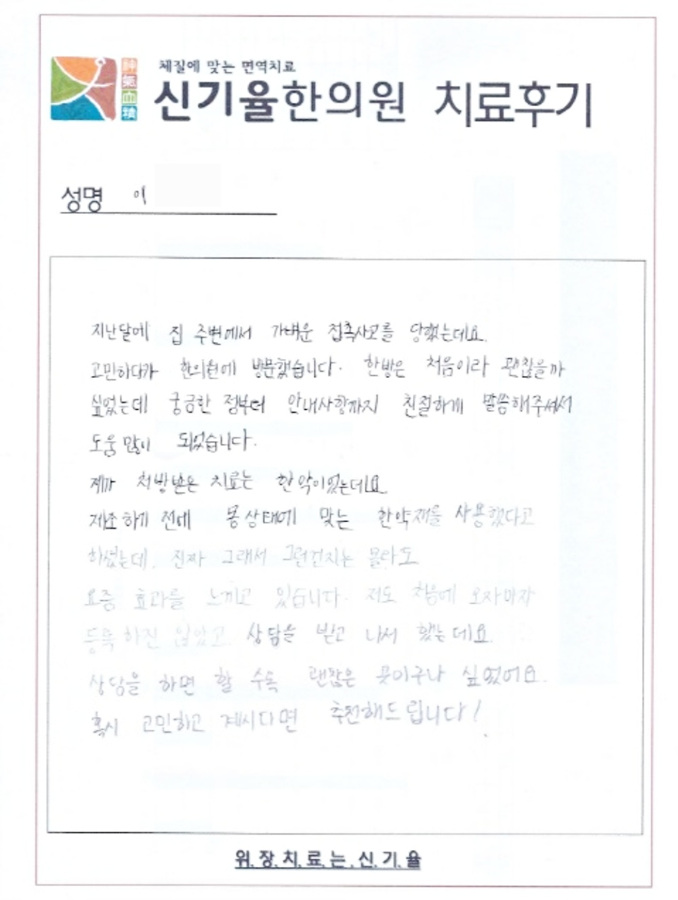 체질에 맞는 면역치료
신기율한의원 치료후기
성명 이
지난달에 집 주변에서 가벼운 접촉사고를 당했는데요.
고민하다가 한의원에 방문했습니다. 한방은 처음이라 괜찮을까
싶었는데 궁금한 점부터 안내사항까지 친절하게 말씀해주셔서
도움 많이 되었습니다.
제가 처방받은 치료는 한약이었는데요
제조하기 전에 몸상태에 맞는 한약재를 사용했다고
하셨는데, 진짜 그래서 그런건지는 몰라도
요즘 효과를 느끼고 있습니다. 저도 처음에 오자마자
등록하진 않았고, 상담을 받고 나서 했는데요.
상담을 하면 할 수록 괜찮은 곳이구나 싶었어요.
혹시 고민하고 계시다면 추천해드립니다!
위.장.치.료.는.신.기.율